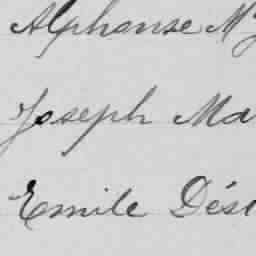 Alphonse M
Joseph Ma
Emile Dés